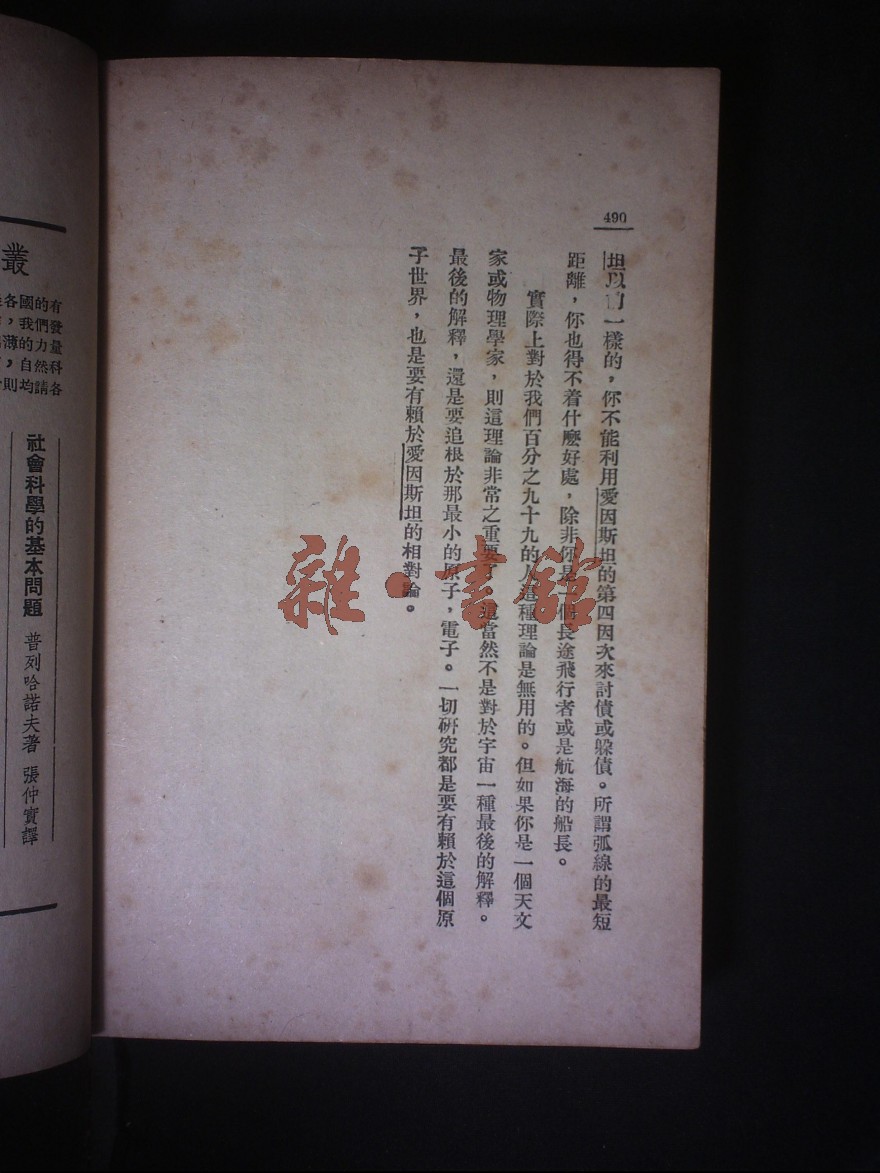 490
坦以前一樣的，你不能利用愛因斯坦的第四因次來討債或躲債。所謂弧線的最短
距離，你也得不着什麽好處，除非你是一個長途飛行者或是航海的船長。
實際上對於我們百分之九十九的人這種理論是無用的。但如果你是一個天文
家或物理學家，則這理論非常之重要了，這當然不是對於宇宙一種最後的解釋。
最後的解釋，還是要追根於那最小的原子，電子。一切研究都是要有賴於這個原
子世界，也是要有賴於愛因斯坦的相對論。
雜·書館
叢
各國的有
，我們發
薄的力量
，自然科
則均請各
社會科學的基本問題
普列哈諾夫著 張仲實譯